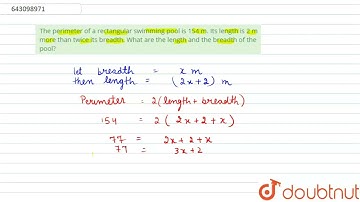 643098971
The perimeter of a rectangular swimming pool is 154 m. Its length is 2 m
more than twice its breadth. What are the length and the breadth of the
pool?
let breadth = x m
then length = (2x+2) m
Perimeter = 2(length+breadth)
154 = 2(2x+2+x)
77 = 2x+2+x
77 = 3x+2
doubtnut